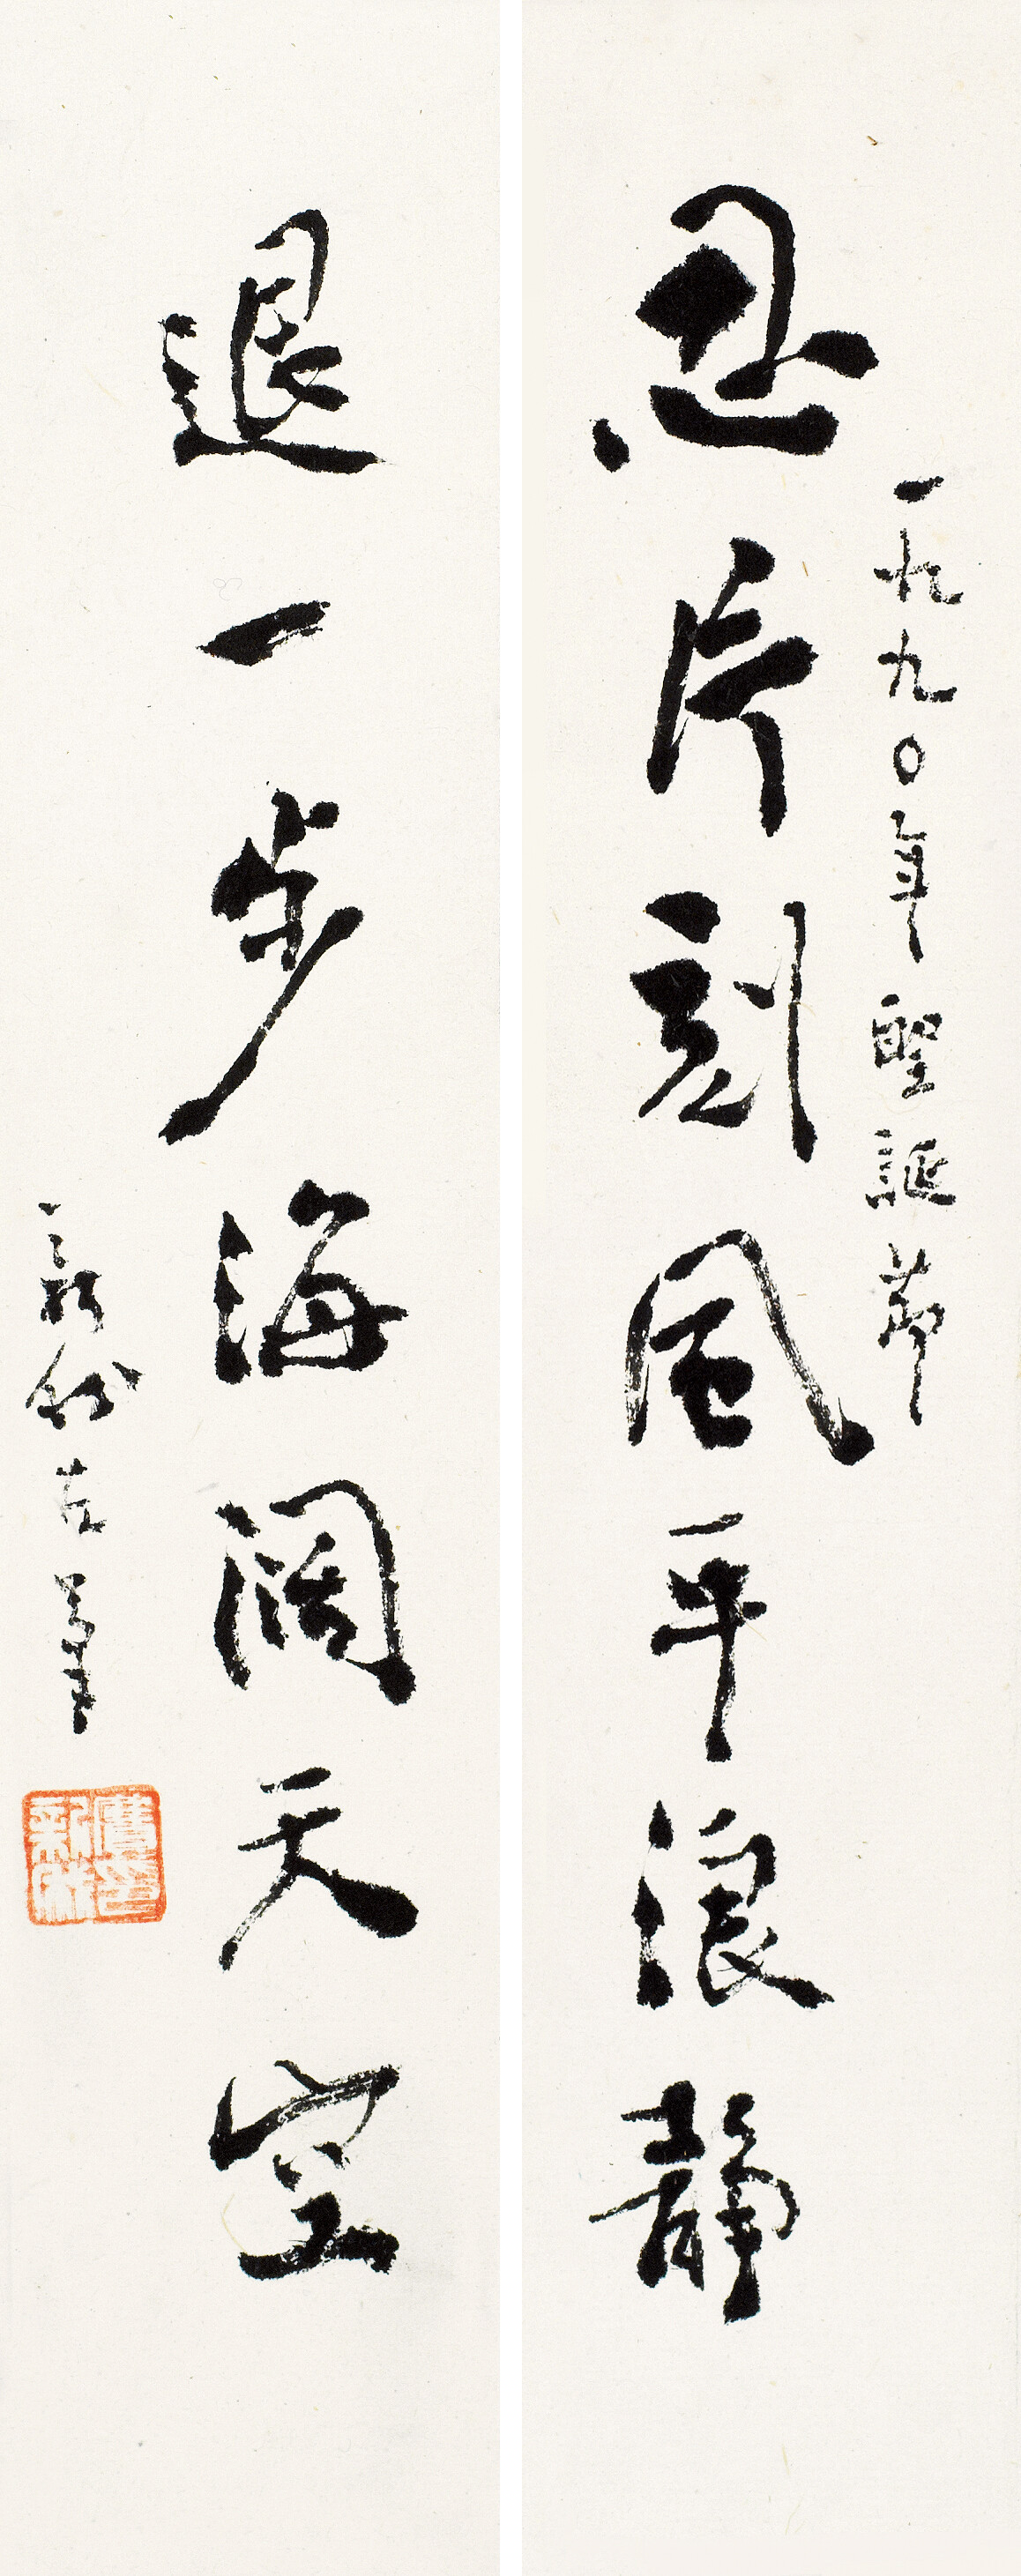 一九九〇年聖誕節
忍片刻風平浪靜
退一步海闊天空
新林左筆